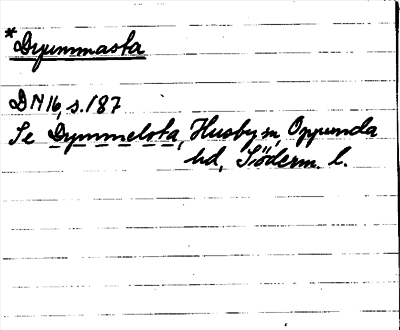 *Drymmasta
DN16, s.187
Se Dymmelsta, Husby sn, Oppunda
hd, Söderm. l.